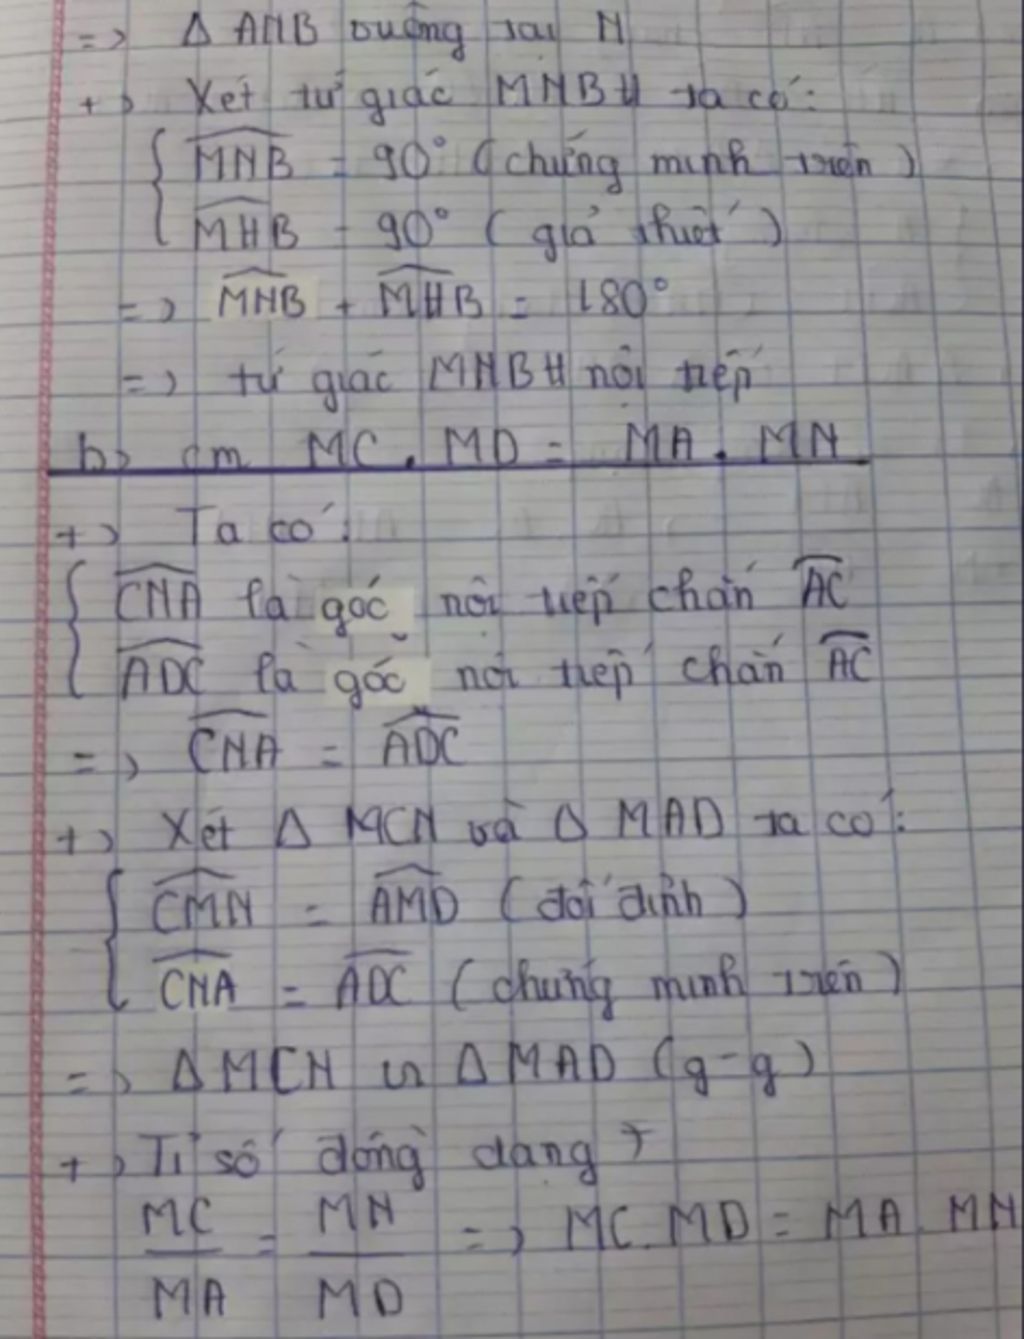 => Δ ANB vuông tại N
+> Xét tứ giác MNBH ta có:
MNB = 90° (chứng minh trên)
MHB = 90° (giả thiết)
=> MNB + MHB = 180°
=> tứ giác MNBH nội tiếp
b> cm MC. MD = MA. MN
+> Ta có:
CNA là góc nội tiếp chắn AC
ADC là góc nội tiếp chắn AC
=> CNA = ADC
+> Xét Δ MCN và Δ MAD ta có:
CMN = AMD (đối đỉnh)
CNA = ADC (chứng minh trên)
=> Δ MCN ∽ Δ MAD (g-g)
+> Tỉ số đồng dạng
MC/MA = MN/MD => MC. MD = MA. MN